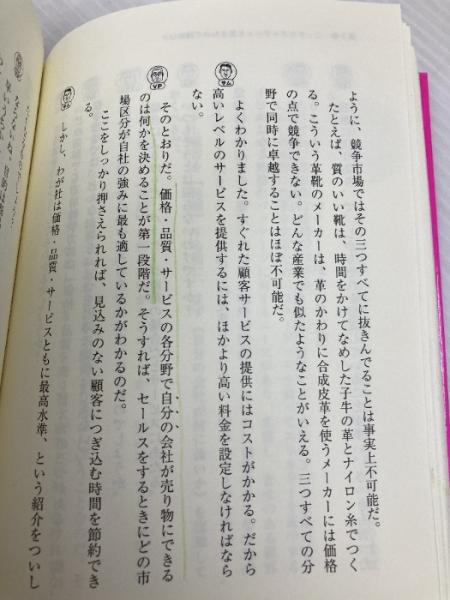 ように、競争市場ではその三つすべてに抜きんでることは事実上不可能だ。
たとえば、質のいい靴は、時間をかけてなめした子牛の革とナイロン糸でつく
る。こういう革靴のメーカーは、革のかわりに合成皮革を使うメーカーには価格
の点で競争できない。どんな産業でも似たようなことがいえる。三つすべての分
野で同時に卓越することはほぼ不可能だ。
サム
よくわかりました。すぐれた顧客サービスの提供にはコストがかかる。だから
高いレベルのサービスを提供するには、ほかより高い料金を設定しなければなら
ない。
VP
そのとおりだ。価格・品質・サービスの各分野で自分の会社が売り物にできる
のは何かを決めることが第一段階だ。そうすれば、セールスをするときにどの市
場区分が自社の強みに最も適しているかがわかるのだ。
ここをしっかり押さえられれば、見込みのない顧客につぎ込む時間を節約でき
る。
サム
しかし、わが社は価格・品質・サービスともに最高水準、という紹介をついし